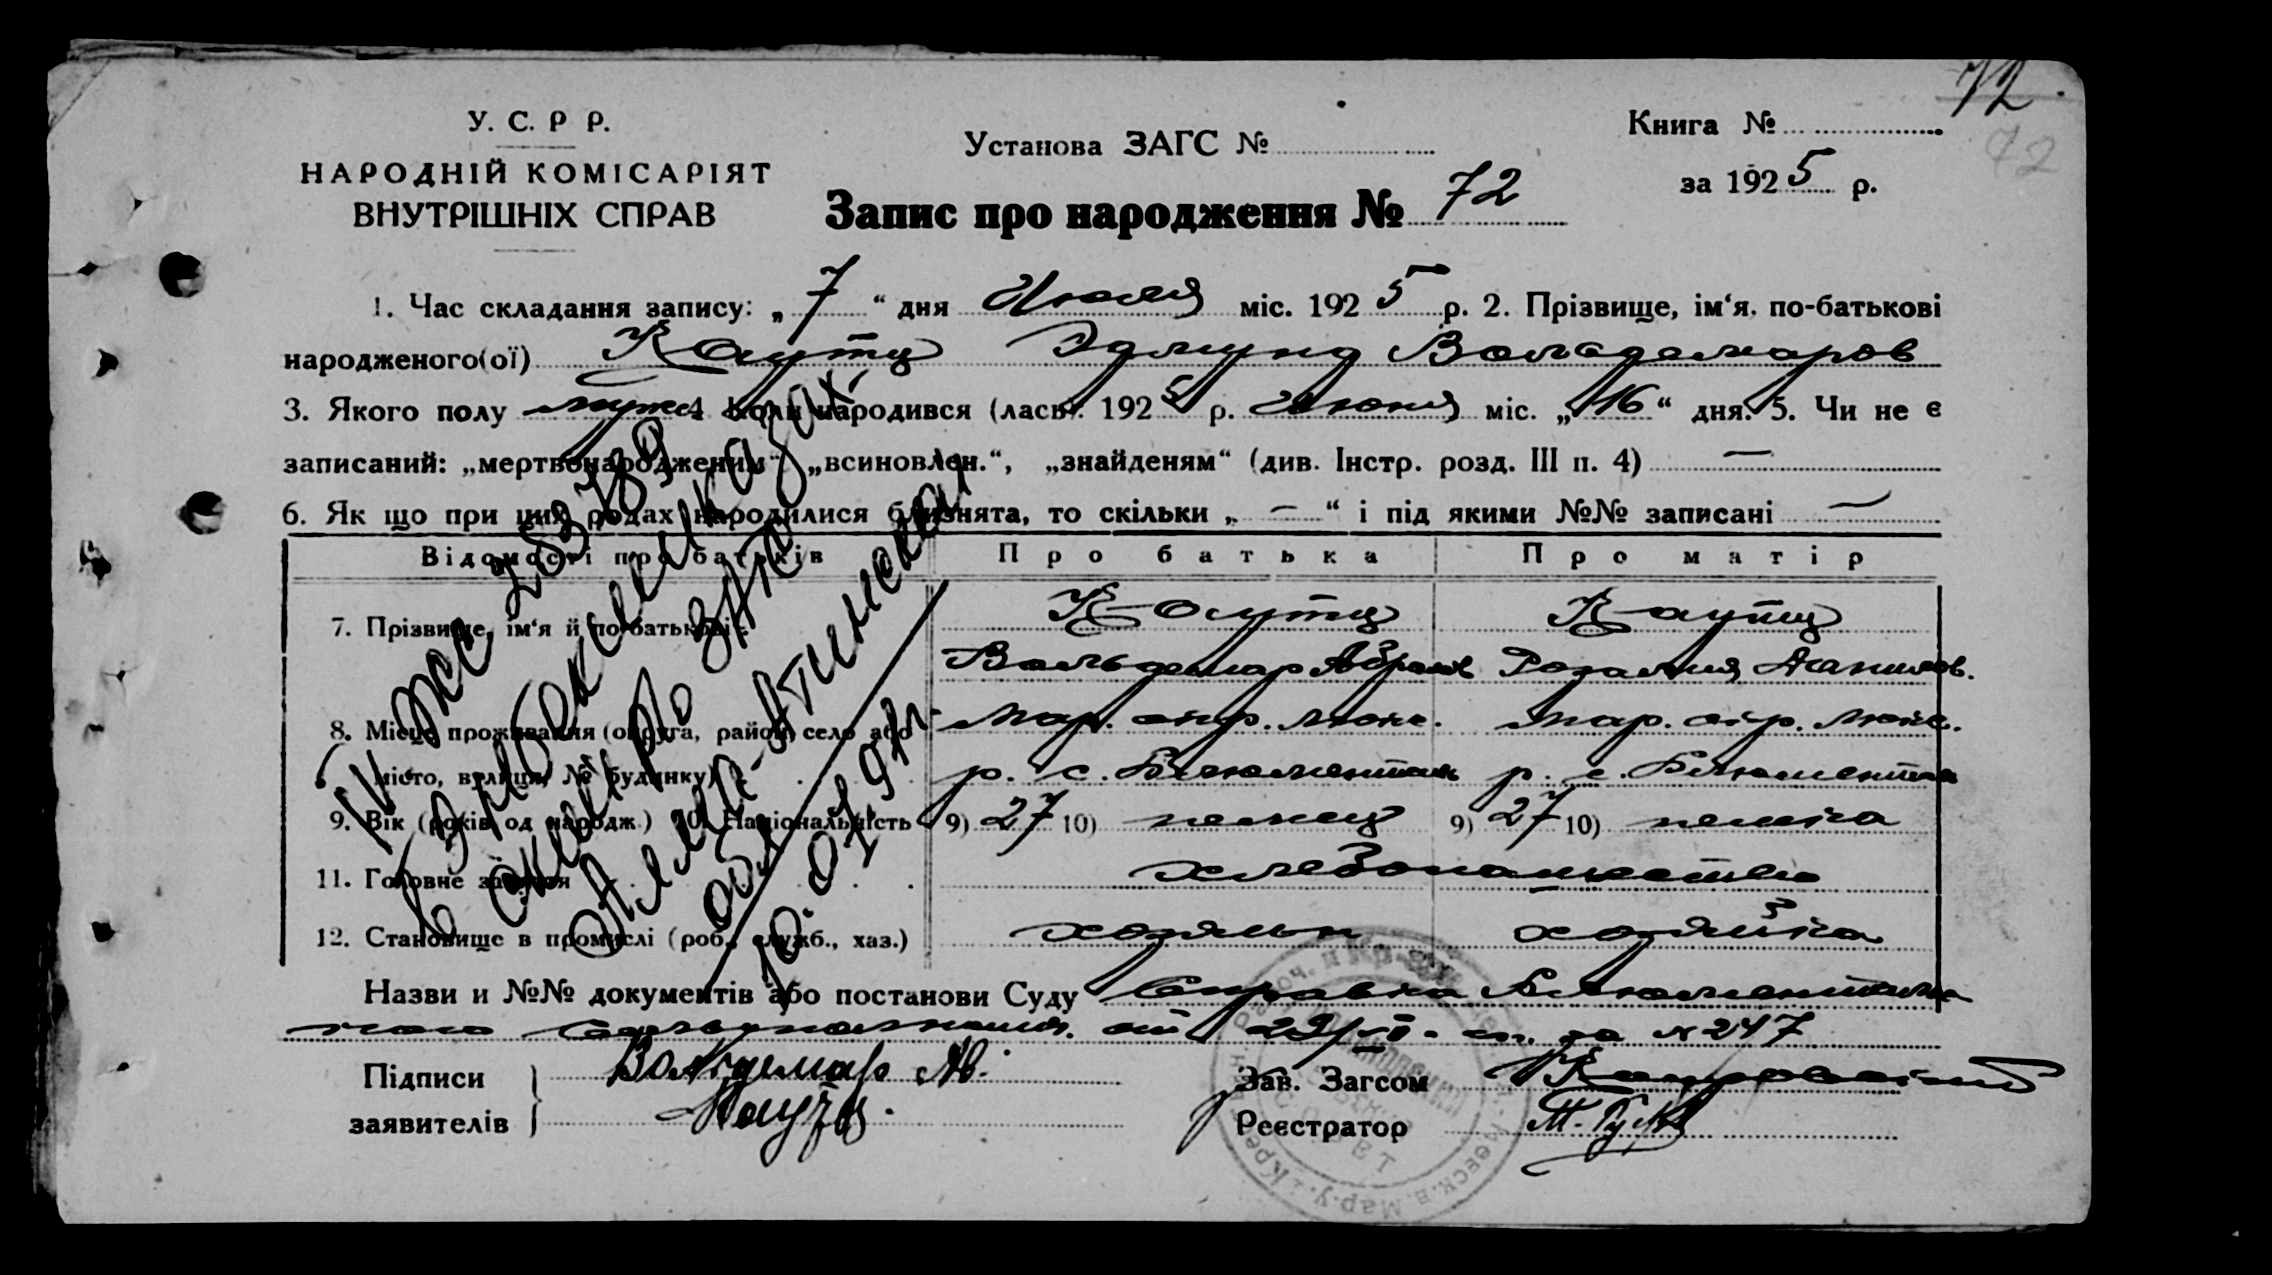 72.
72
У. С. Р Р.
НАРОДНІЙ КОМІСАРІЯТ
ВНУТРІШНІХ СПРАВ
Установа ЗАГС №
Книга №
за 1925 р.
Запис про народження № 72
1. Час складання запису: „7“ дня Июля міс. 1925 р. 2. Прізвище, ім‘я, по-батькові
народженого(ої) Каутц Эдмунд Вольдемаров
3. Якого полу муж. 4 Коли народився (лась). 1925 р. Июня міс. „16“ дня. 5. Чи не є
записаний: „мертвонародженим“, „всиновлен.“, „знайденям“ (див. Інстр. розд. III п. 4) —
6. Як що при цих родах народилися близнята, то скільки „—“ і під якими №№ записані —
Відомості про батьків Про батька Про матір
7. Прізвище, ім‘я й по-батькові: Каутц Каутц
Вольдемар Абрамов Розалия Данилов.
8. Місце проживання (округа, район, село або Мар. окр. Люкс. Мар. окр. Люкс.
місто, вулиця, № будинку) р. с. Блюменталь р. с. Блюменталь
9. Вік (років од народж.) 10. Національність 9) 27 10) немец 9) 27 10) немка
11. Головне заняття хлебопашество
12. Становище в промислі (роб., служб., хаз.) хозяин хозяйка
Назви и №№ документів або постанови Суду Справка Блюментальс
кого от 29/VI за № 247
Підписи Вольдемар Аб. Зав. Загсом
заявителів Каутц. Реєстратор
10.01.91г.